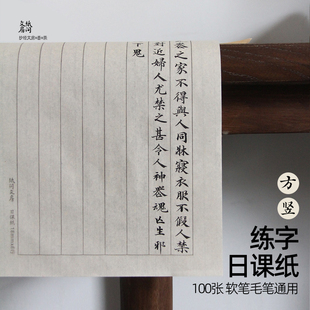 之家不得與人同牀寢衣服不假人禁
近婦人尤禁之甚令人神喪魂亡生邪
下鬼
方
竖
练字
日课纸
100张 软笔毛笔通用